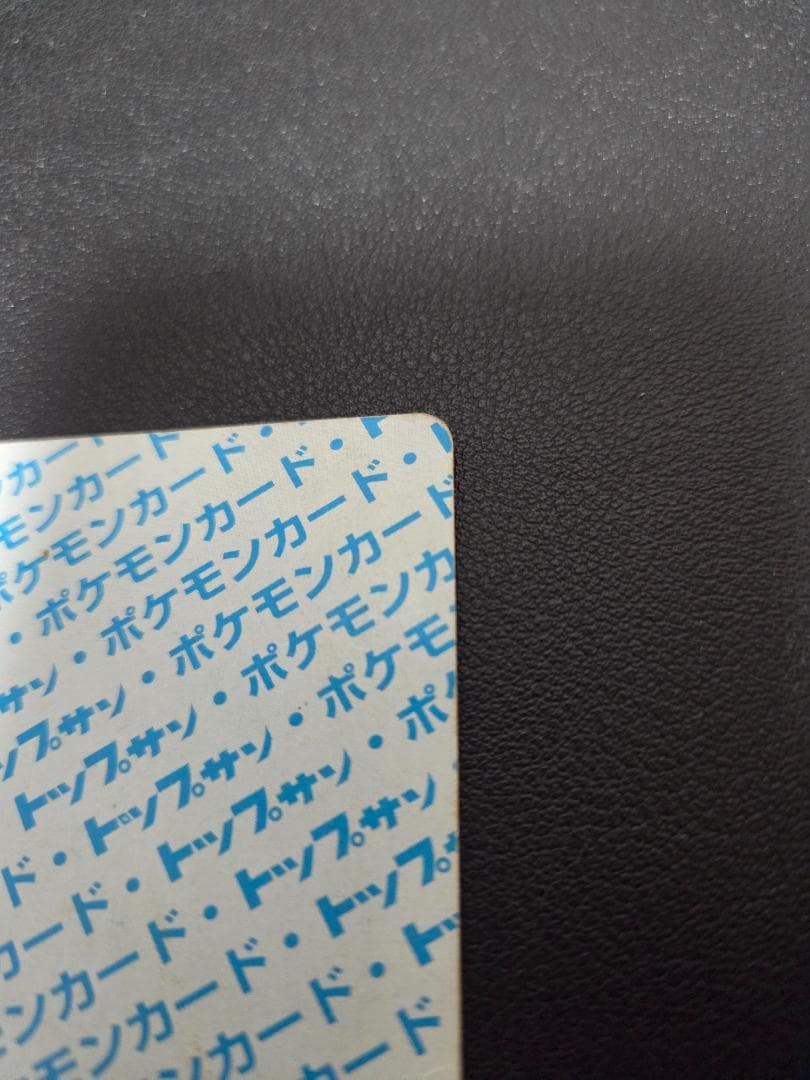 カー
モンカード
ポケモンカード・
・ポケモンカード・ト
サン・ポケモンカード・ト
ップサン・ポケモンカード
トップサン・ポケモンカ
ド・トップサン・ポケモ
カード・トップサン・ポ
ンカード・トップサン
モンカード・トップ
ンカード・トッ
カード